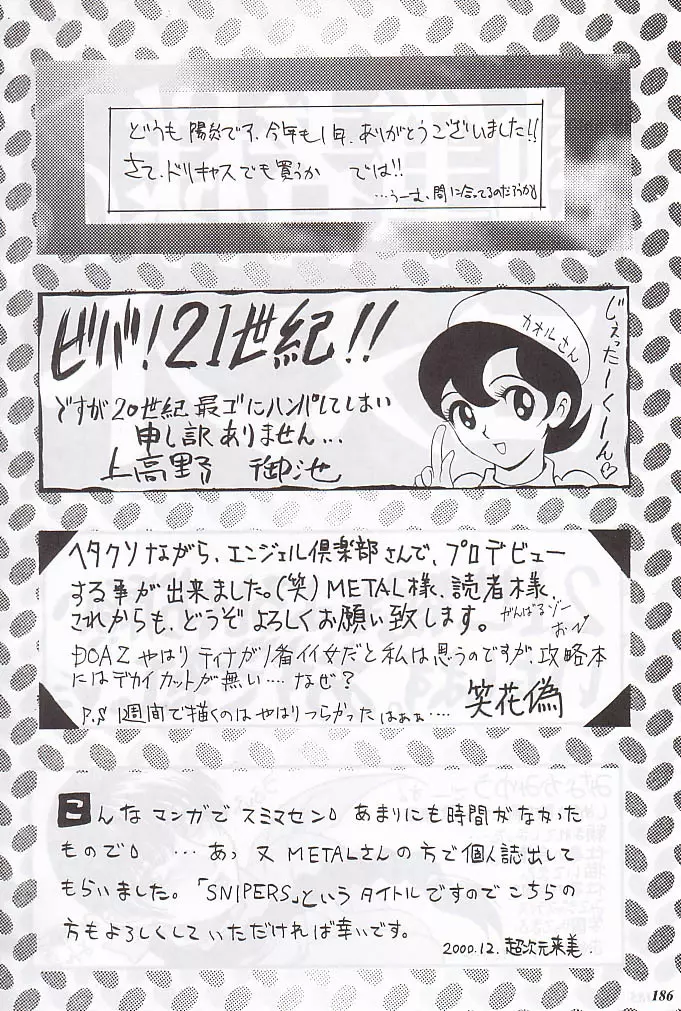 どうも陽炎です、今年も1年、ありがとうございました!!
さて、ドリキャスでも買うか では!!
…うーむ、間に合ってるのだろうか
ビバ!21世紀!!
ですが20世紀最ゴにハンパしてしまい
申し訳ありません...
上高野 御池
カオルさん
じぇったーくーん♡
ヘタクソながら、エンジェル倶楽部さんで、プロデビュー
する事が出来ました。(笑)METAL様、読者様、
これからも、どうぞよろしくお願い致します。
がんばるゾー
おー
DOA2 やはり ティナが1番イイ女だと私は思うのですが、攻略本
にはデカイカットが無い…. なぜ?
笑花偽
P.S 1週間で描くのはやはりつらかった はぁぁ….
こんなマンガでスミマセン。あまりにも時間がなかった
もので。 …あっ又METALさんの方で個人誌出して
もらいました。「SNIPERS」というタイトルですのでこちらの
方もよろしくしていただければ幸いです。
2000.12. 超次元来美.
186